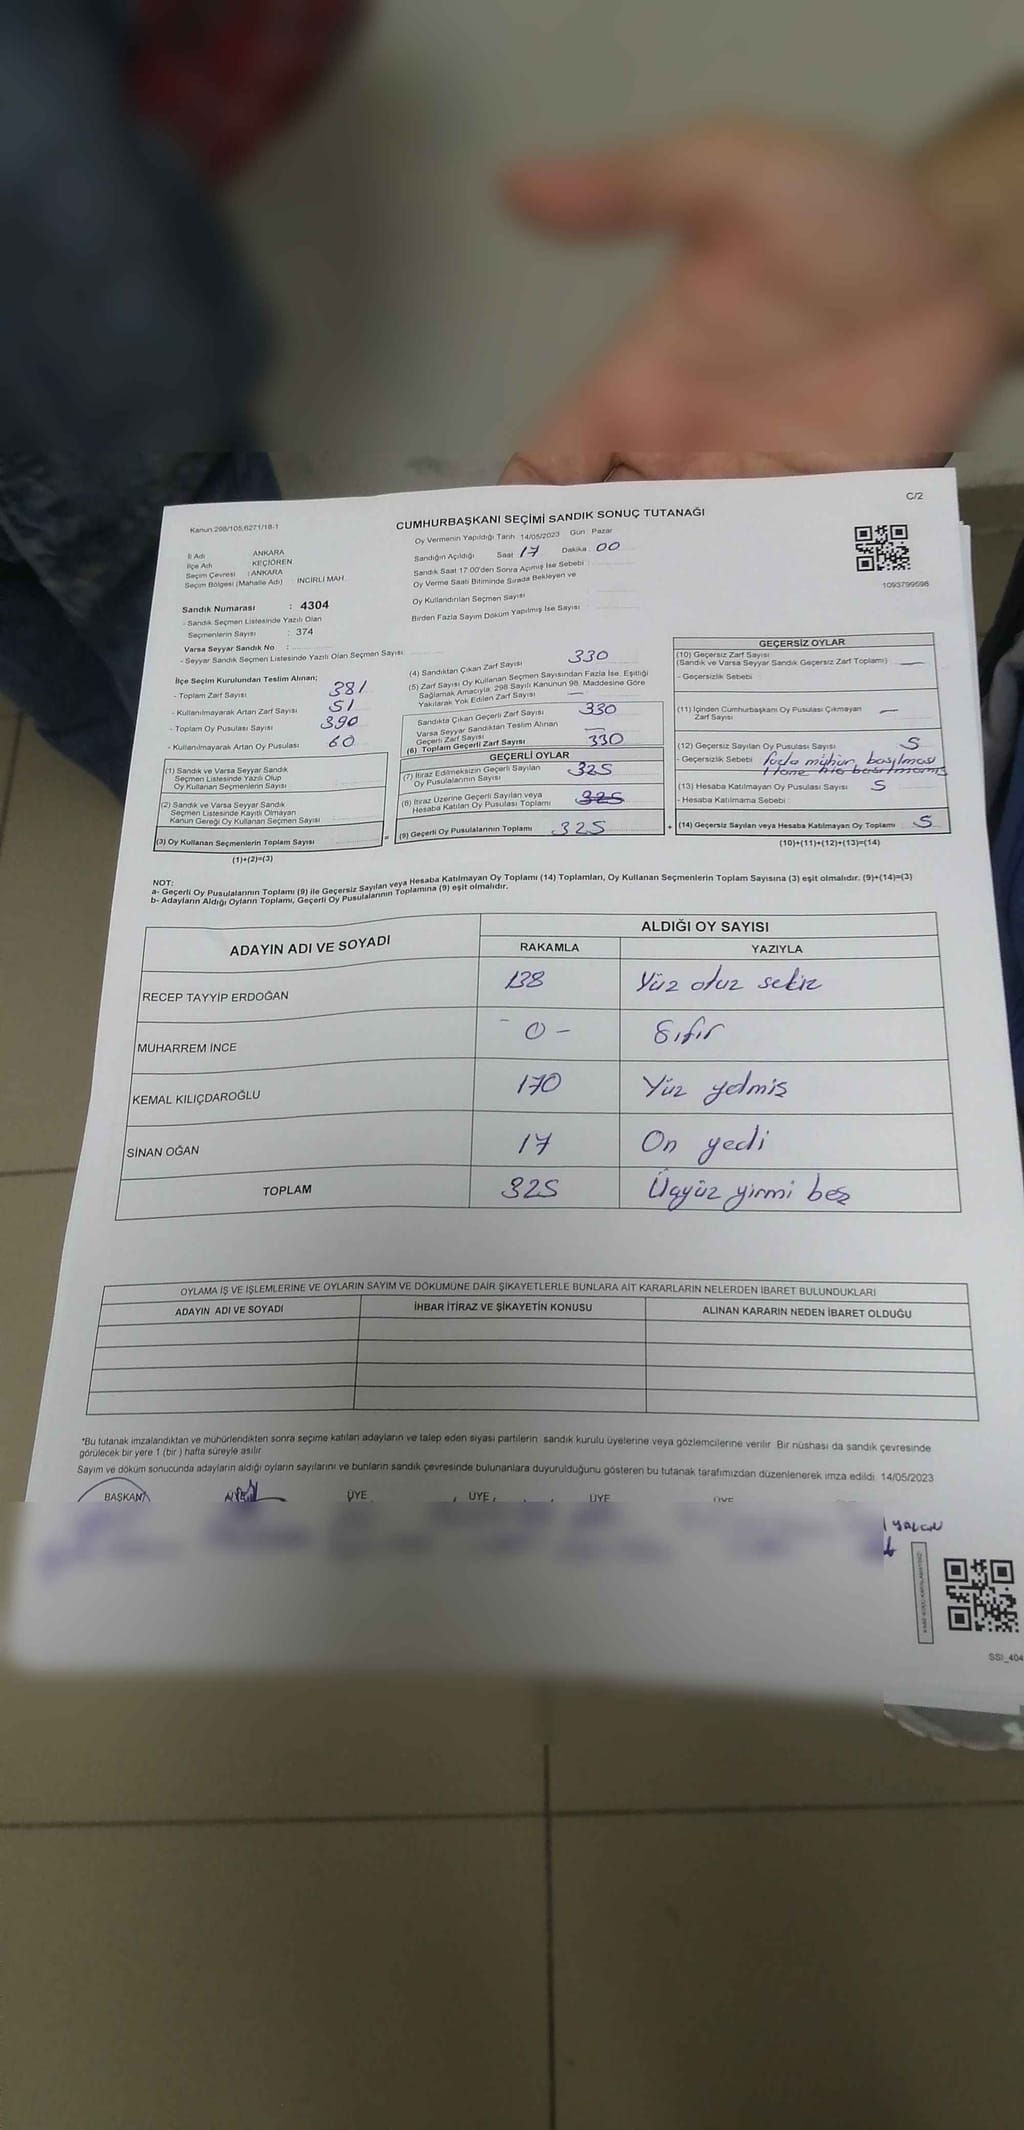 C/2
Kanun 298/105,6271/18-1
CUMHURBAŞKANI SEÇİMİ SANDIK SONUÇ TUTANAĞI
İl Adı ANKARA
İlçe Adı KEÇİÖREN
Seçim Çevresi : ANKARA
Seçim Bölgesi (Mahalle Adı) İNCİRLİ MAH.
Oy Vermenin Yapıldığı Tarih 14/05/2023 Gün : Pazar
Sandığın Açıldığı Saat 17 Dakika 00
Sandık Saat 17:00'den Sonra Açılmış İse Sebebi :
Oy Verme Saati Bitiminde Sırada Bekleyen ve
Oy Kullandırılan Seçmen Sayısı
Birden Fazla Sayım Döküm Yapılmış İse Sayısı :
1093799596
Sandık Numarası : 4304
- Sandık Seçmen Listesinde Yazılı Olan
Seçmenlerin Sayısı : 374
Varsa Seyyar Sandık No :
- Seyyar Sandık Seçmen Listesinde Yazılı Olan Seçmen Sayısı
İlçe Seçim Kurulundan Teslim Alınan;
- Toplam Zarf Sayısı 381
- Kullanılmayarak Artan Zarf Sayısı 51
- Toplam Oy Pusulası Sayısı 390
- Kullanılmayarak Artan Oy Pusulası 60
(1) Sandık ve Varsa Seyyar Sandık
Seçmen Listesinde Yazılı Olup
Oy Kullanan Seçmenlerin Sayısı
(2) Sandık ve Varsa Seyyar Sandık
Seçmen Listesinde Kayıtlı Olmayan
Kanun Gereği Oy Kullanan Seçmen Sayısı
(3) Oy Kullanan Seçmenlerin Toplam Sayısı
(1)+(2)=(3)
=
(4) Sandıktan Çıkan Zarf Sayısı 330
(5) Zarf Sayısı Oy Kullanan Seçmen Sayısından Fazla İse, Eşitliği
Sağlamak Amacıyla, 298 Sayılı Kanunun 98. Maddesine Göre
Yakılarak Yok Edilen Zarf Sayısı —
Sandıkta Çıkan Geçerli Zarf Sayısı 330
Varsa Seyyar Sandıktan Teslim Alınan
Geçerli Zarf Sayısı —
(6) Toplam Geçerli Zarf Sayısı 330
GEÇERLİ OYLAR
(7) İtiraz Edilmeksizin Geçerli Sayılan
Oy Pusulalarının Sayısı 325
(8) İtiraz Üzerine Geçerli Sayılan veya
Hesaba Katılan Oy Pusulası Toplamı 325
(9) Geçerli Oy Pusulalarının Toplamı 325
+
GEÇERSİZ OYLAR
(10) Geçersiz Zarf Sayısı
(Sandık ve Varsa Seyyar Sandık Geçersiz Zarf Toplamı) —
- Geçersizlik Sebebi
(11) İçinden Cumhurbaşkanı Oy Pusulası Çıkmayan
Zarf Sayısı —
(12) Geçersiz Sayılan Oy Pusulası Sayısı 5
- Geçersizlik Sebebi fazla mühür basılması
1 tane hiç basılmamış
(13) Hesaba Katılmayan Oy Pusulası Sayısı 5
- Hesaba Katılmama Sebebi
(14) Geçersiz Sayılan veya Hesaba Katılmayan Oy Toplamı 5
(10)+(11)+(12)+(13)=(14)
NOT:
a- Geçerli Oy Pusulalarının Toplamı (9) ile Geçersiz Sayılan veya Hesaba Katılmayan Oy Toplamı (14) Toplamları, Oy Kullanan Seçmenlerin Toplam Sayısına (3) eşit olmalıdır. (9)+(14)=(3)
b- Adayların Aldığı Oyların Toplamı, Geçerli Oy Pusulalarının Toplamına (9) eşit olmalıdır.
ADAYIN ADI VE SOYADI ALDIĞI OY SAYISI
RAKAMLA YAZIYLA
RECEP TAYYİP ERDOĞAN 138 Yüz otuz sekiz
MUHARREM İNCE - 0 - Sıfır
KEMAL KILIÇDAROĞLU 170 Yüz yetmiş
SİNAN OĞAN 17 On yedi
TOPLAM 325 Üçyüz yirmi beş
OYLAMA İŞ VE İŞLEMLERİNE VE OYLARIN SAYIM VE DÖKÜMÜNE DAİR ŞİKAYETLERLE BUNLARA AİT KARARLARIN NELERDEN İBARET BULUNDUKLARI
ADAYIN ADI VE SOYADI İHBAR İTİRAZ VE ŞİKAYETİN KONUSU ALINAN KARARIN NEDEN İBARET OLDUĞU
*Bu tutanak imzalandıktan ve mühürlendikten sonra seçime katılan adayların ve talep eden siyasi partilerin sandık kurulu üyelerine veya gözlemcilerine verilir. Bir nüshası da sandık çevresinde
görülecek bir yere 1 (bir) hafta süreyle asılır.
Sayım ve döküm sonucunda adayların aldığı oyların sayılarını ve bunların sandık çevresinde bulunanlara duyurulduğunu gösteren bu tutanak tarafımızdan düzenlenerek imza edildi. 14/05/2023
BAŞKAN ÜYE ÜYE ÜYE ÜYE ÜYE
YALÇIN
SSI_404